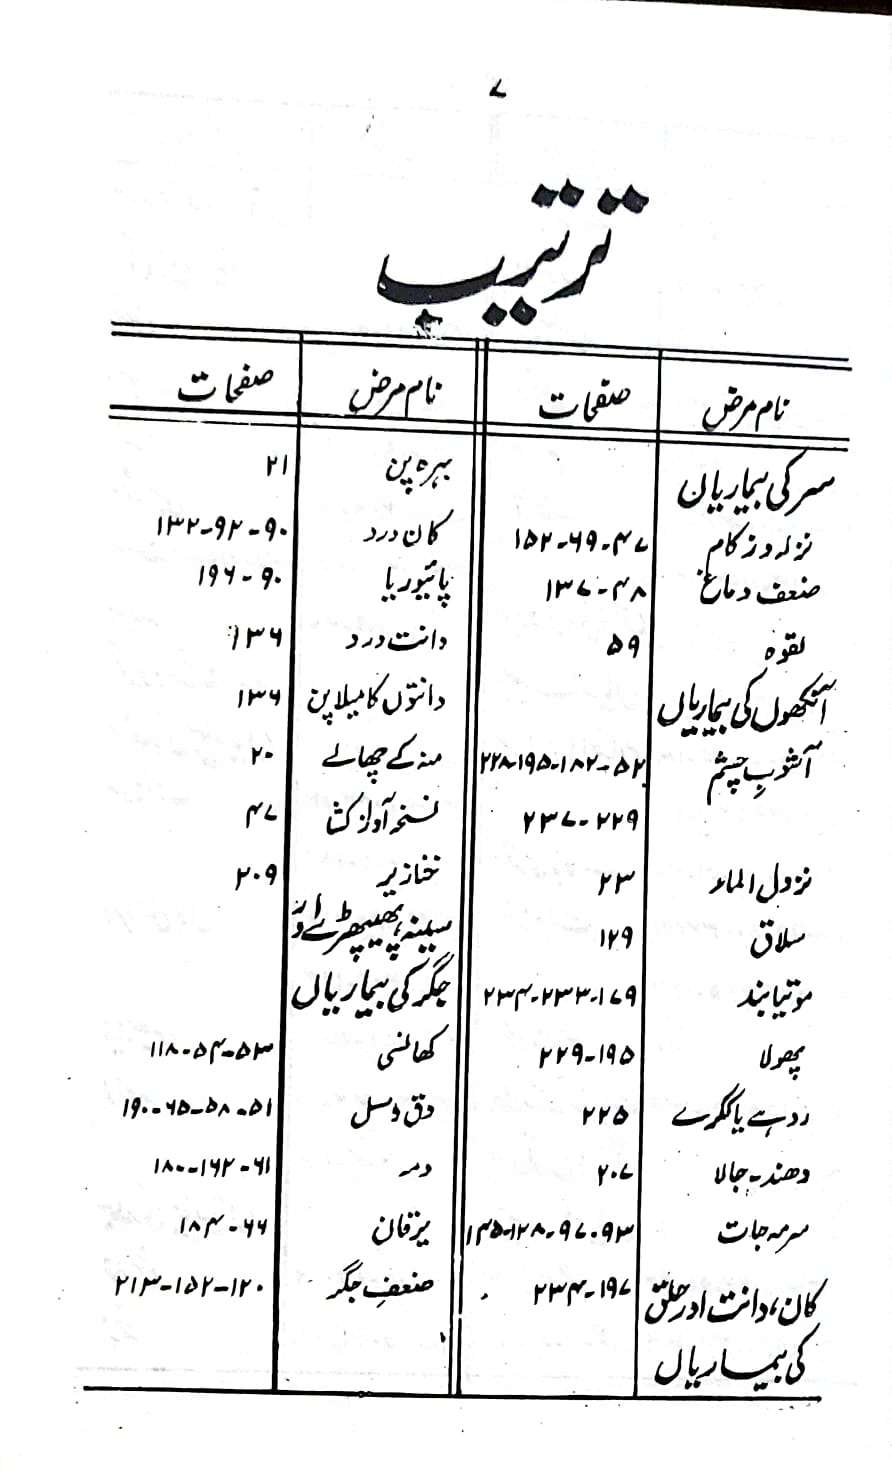 ۷
ترتیب
نام مرض صفحات
سر کی بیماریان
نزلہ و زکام ۴۷-۶۹-۱۵۲
ضعف دماغ ۴۸-۱۳۷
لقوہ ۵۹
آنکھوں کی بیماریاں
آشوبِ چشم ۵۲-۱۸۲-۱۹۵-۲۲۸
۲۲۹-۲۳۷
نزول الماء ۲۳
سلاق ۱۲۹
موتیا بند ۱۷۹-۲۳۳-۲۳۴
پھولا ۱۹۵-۲۲۹
روہے یا ککرے ۲۲۵
دھند-جالا ۲۰۷
سرمہ جات ۹۳-۹۷-۱۲۸-۱۴۵
۱۹۷-۲۳۴
کان، دانت اور حلق
کی بیماریاں
نام مرض صفحات
بہرہ پن ۲۱
کان درد ۹۰-۹۲-۱۳۲
پائیوریا ۹۰-۱۹۶
دانت درد ۱۳۶
دانتوں کا میلا پن ۱۳۶
منہ کے چھالے ۲۰
نسخہ آواز کشا ۴۷
خنازیر ۲۰۹
سینہ، پھیپھڑے اور
جگر کی بیماریاں
کھانسی ۵۳-۵۴-۱۱۸
دق و سل ۵۱-۵۸-۶۵-۱۹۰
دمہ ۶۱-۱۶۲-۱۸۰
یرقان ۶۶-۱۸۴
ضعفِ جگر ۱۲۰-۱۵۲-۲۱۳